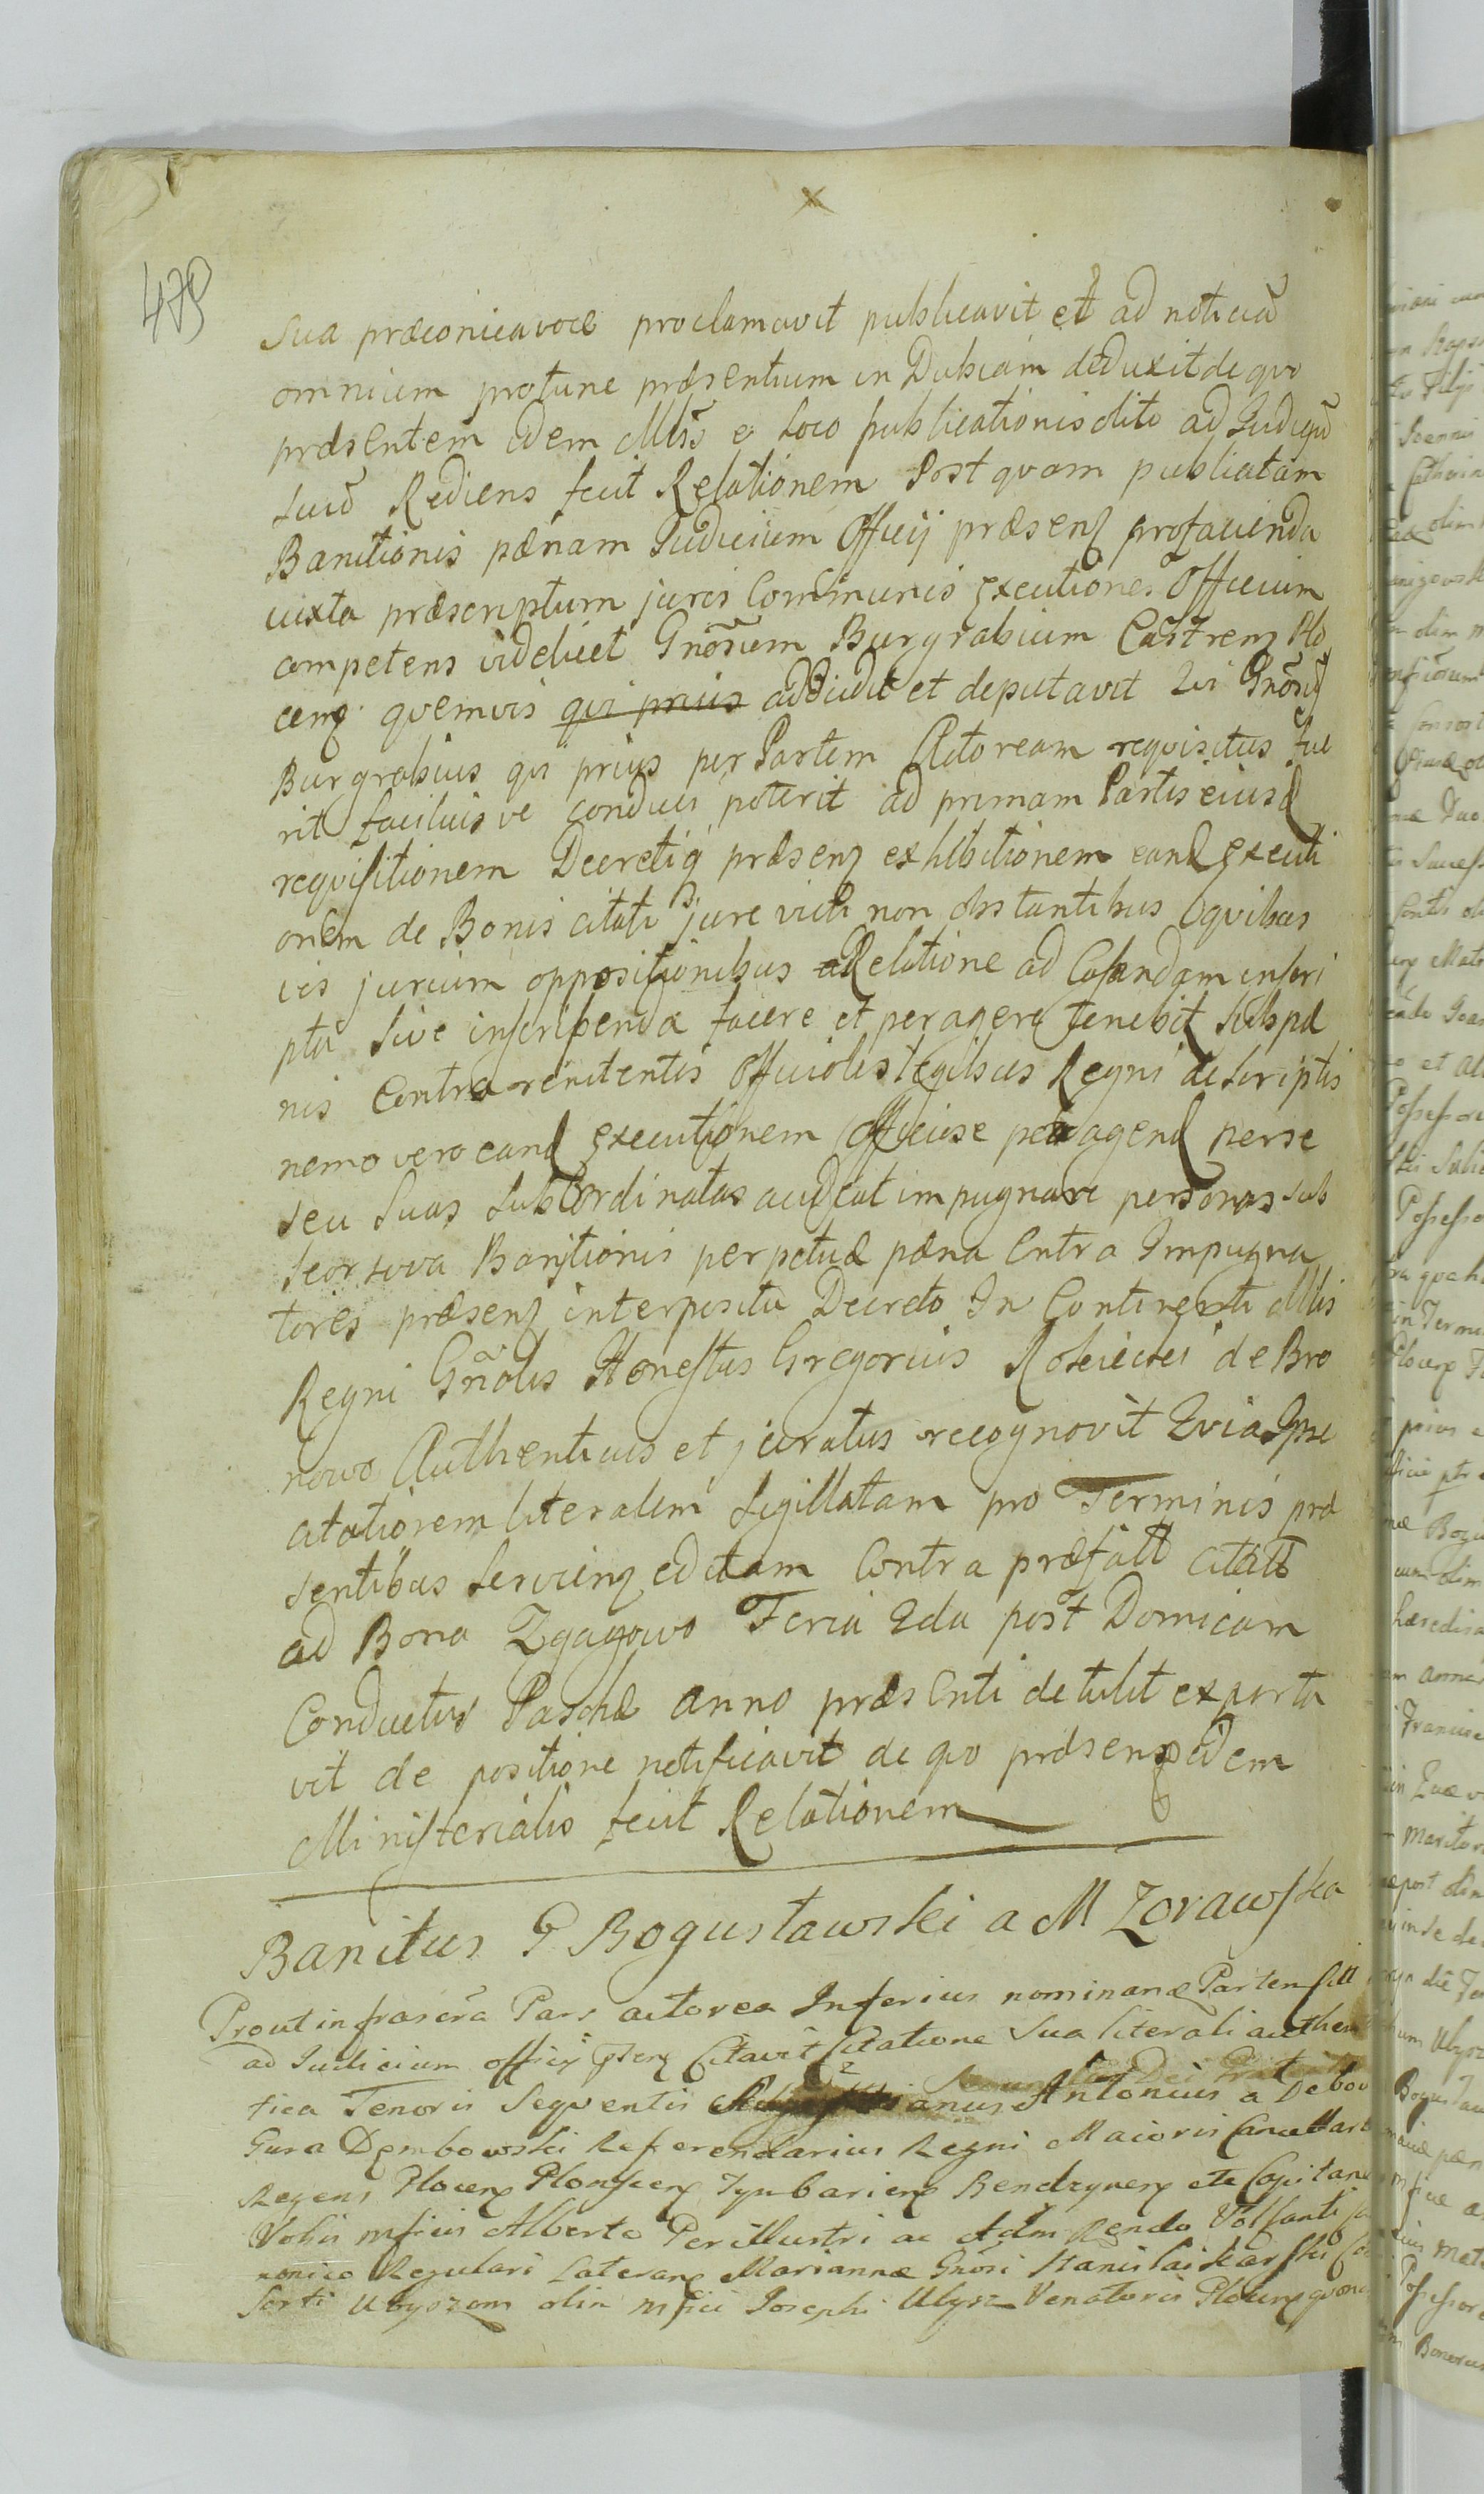 475
sua præconica voce proclamavit publicavit et ad noticiã
omnium protunc præsentium in Dubiam deduxit de quo
præsentem idem Mlis è Loco publicationis dito ad Judiciũ
suũ Rediens fecit Relationem Post quam publicatam
Banitionis pænam Judicium Officij præsenz pro facienda
iuxta præscriptum juris Communis Executiones Officium
competens videlicet Gnõsum Burgrabium Castrenz Plo
cenz quemvis qui prius addidit et deputavit Qui Gnõsus
Burgrabius qui prius per Partem Actoream requisitus fue
rit faciliusve conduci poterit ad primam Partis eiusd
requisitionem Decretiq præsenz exhibitionem eand Executi
onem de Bonis citati jure victi non obstantibus quibus
vis jurium oppositionibus Relatione ad Casandam inscri
pta sive inscribenda facere et peragere tenebit sub pæ
nis Contra renitentes Officiales legibus Regni descriptis
nemo vero eand Executionem Officiose peragend per se
seu Suas Subordinatas audeat impugnare personas sub
seorsiva Banitionis perpetuæ pæna Contra Impugna
tores præsenz interposita Decreto In Continenti Mlis
Regni Gñalis Honestus Gregorius de Bro
nowo Authenticus et juratus recognovit Quia Ipse
citationem literalem Sigillatam pro Terminis præ
sentibus servienz editam Contra præfatt citatt
ad Bona Zgagowo Feria 2da post Domicam
Conductus Paschæ anno præsenti detulit exporta
vit de positione notificavit de quo præsenz idem
Ministerialis fecit Relationem
Banitus G Bogusławski a M Zorawska
Prout infrascra Pars actorea Inferius nominanz Partem
ad Judicium officij pstenz Citavit Citatione Sua literali authen
tica Tenoris Sequentis anus Antonius a Debow
Gura Dembowski Referendarius Regni Maioris Cancellar
Regens Plocenz Plonscenz Tymbarienz Bendzynenz etc Capitane
Vobis mficis Alberto Perillustri ac Adm Rendo Volfanti
nonico Regulari Lateranz Mariannæ Gnosi Stanislai Karski Con
sorti Ulyszom olim mfici Josephi Ulysz Venatoris Plocenz